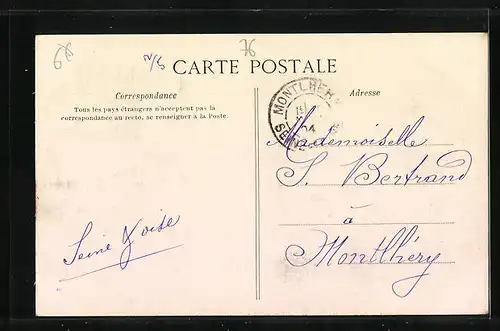 76
CARTE POSTALE
Correspondance
Tous les pays étrangers n'acceptent pas la
correspondance au recto, se renseigner à la Poste.
Adresse
MONTLHÉRY
Mademoiselle
S. Bertrand
à
Montlhéry
Seine & oise